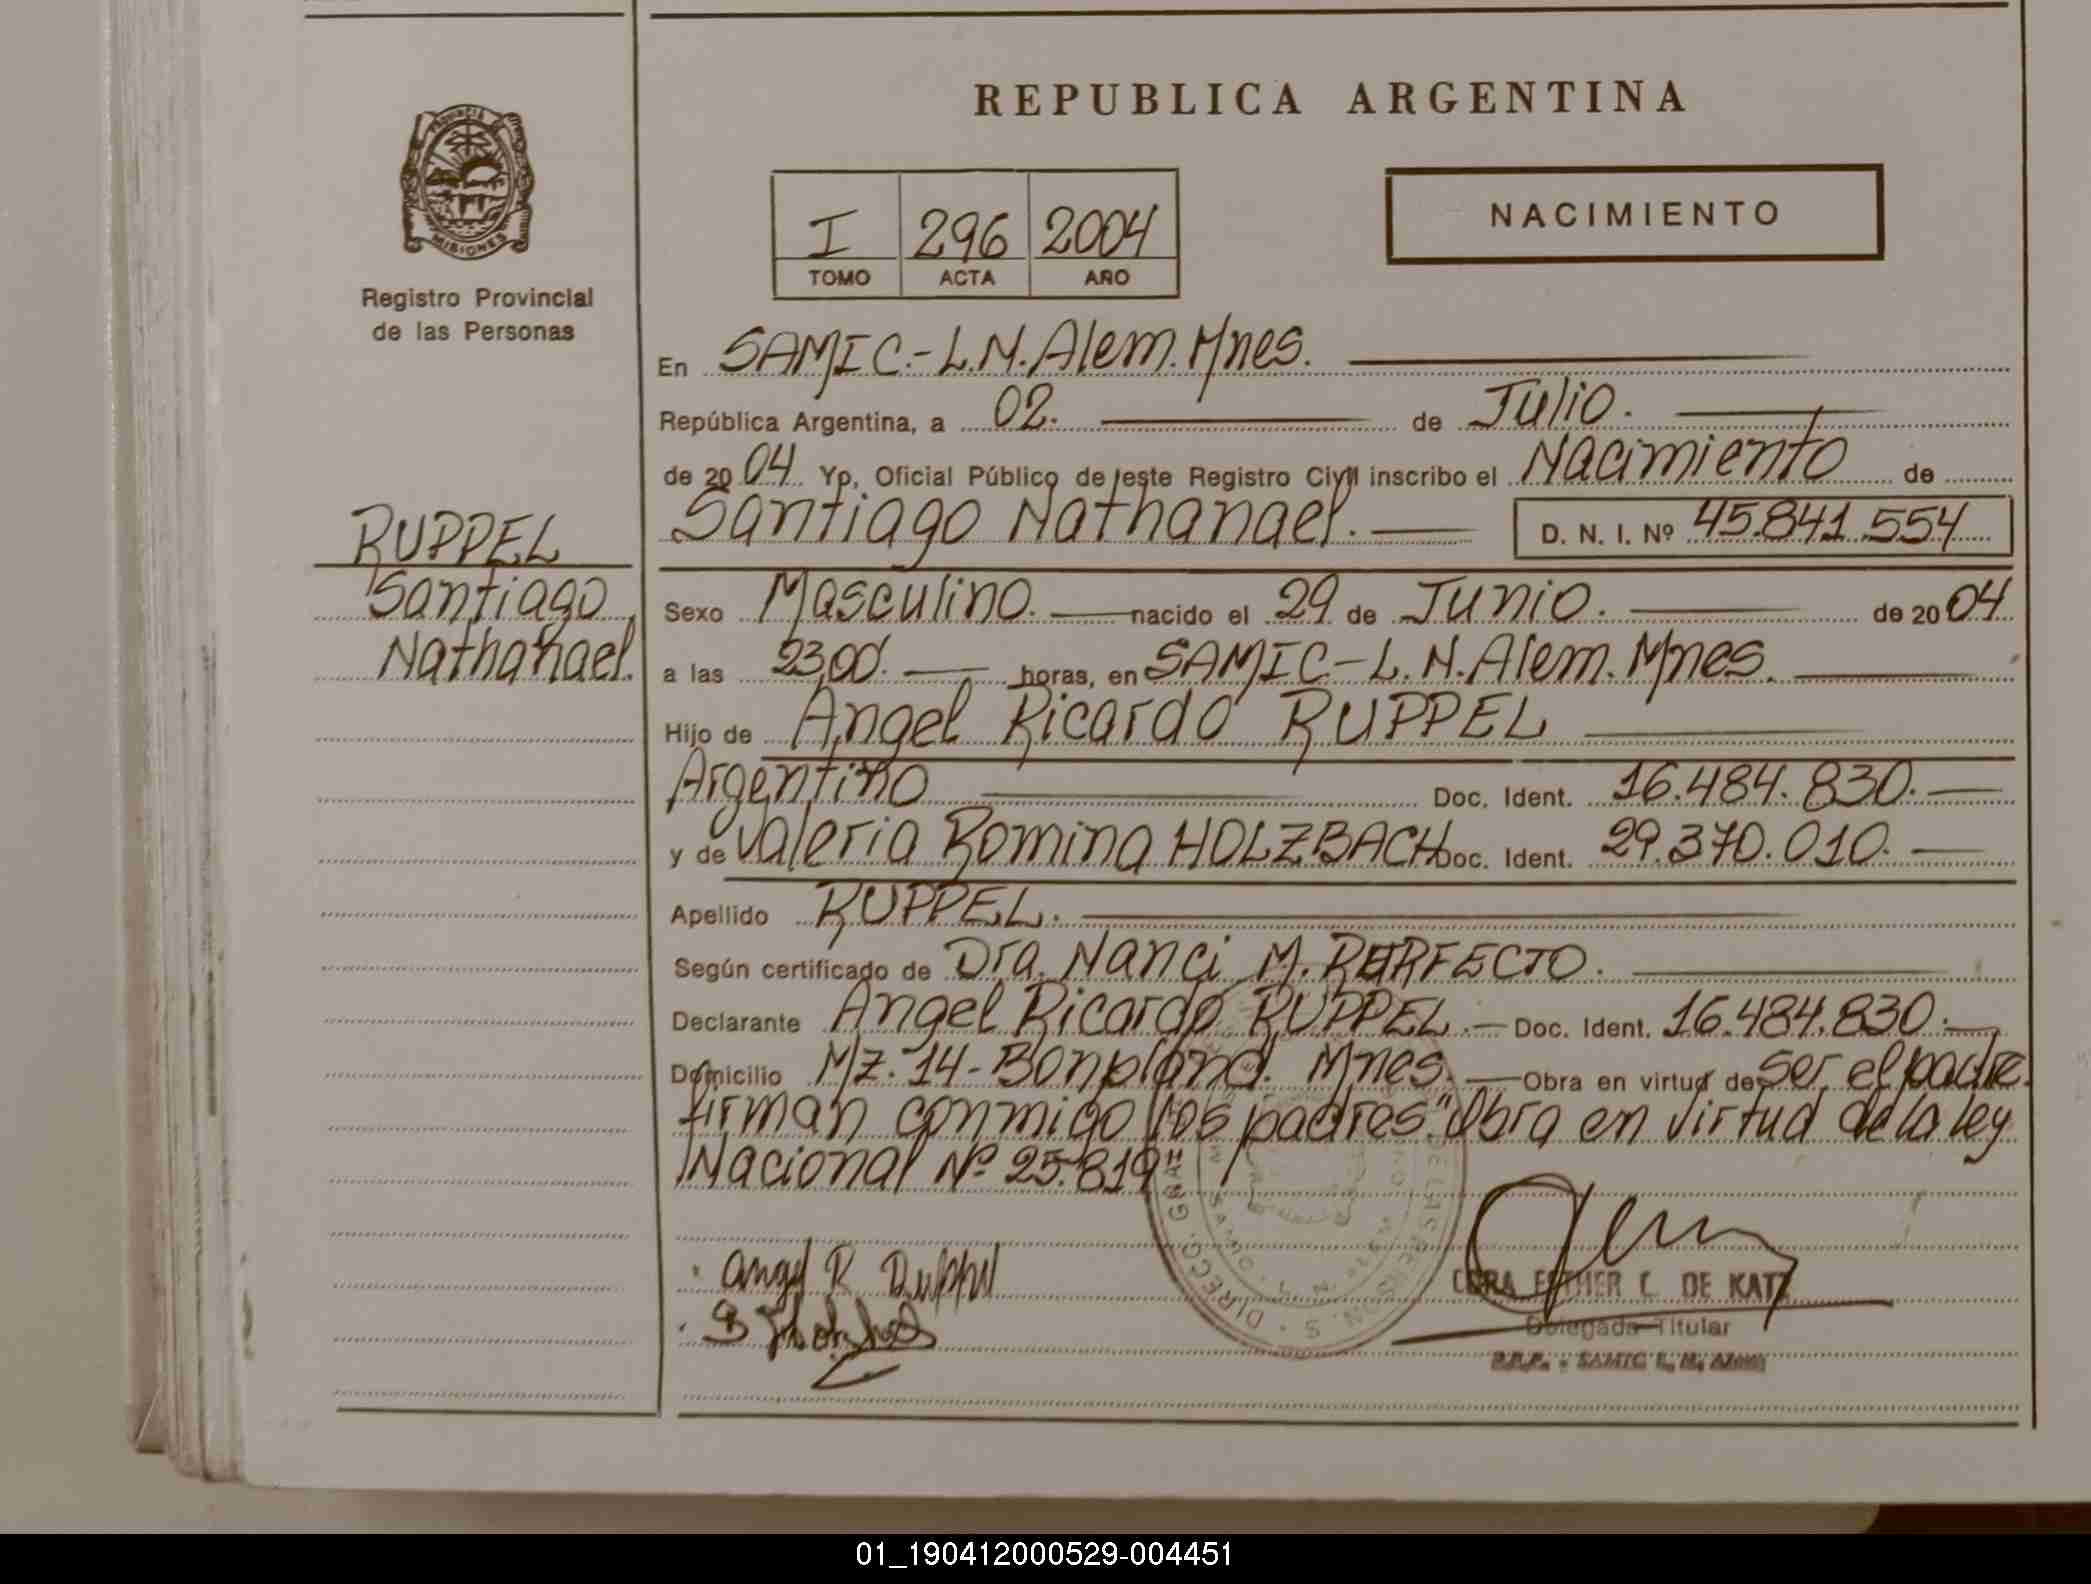 REPUBLICA ARGENTINA
PROVINCIA DE
MISIONES
Registro Provincial
de las Personas
I 296 2004
TOMO ACTA AÑO
NACIMIENTO
En SAMIC.-L.N.Alem.Mnes.
República Argentina, a 02. de Julio.
de 2004 Yo, Oficial Público de este Registro Civil inscribo el Nacimiento de
Santiago Nathanael. D. N. I. Nº 45.841.554
RUPPEL
Santiago
Nathanael.
Sexo Masculino. nacido el 29 de Junio. de 2004
a las 23,00. horas, en SAMIC-L.N.Alem.Mnes.
Hijo de Angel Ricardo RUPPEL
Argentino Doc. Ident. 16.484.830.
y de Valeria Romina HOLZBACH Doc. Ident. 29.370.010.
Apellido RUPPEL.
Según certificado de Dra. Nanci M. PERFECTO.
Declarante Angel Ricardo RUPPEL. Doc. Ident. 16.484.830.
Domicilio Mz.14-Bonpland. Mnes. Obra en virtud de ser el padre.
firman conmigo los padres."Obra en virtud de la ley
Nacional Nº 25.819"
Angel R Ruppel
ESTHER C. DE KATZ
Delegada Titular
R.P.P. - SAMIC L. N. ALEM
01_190412000529-004451